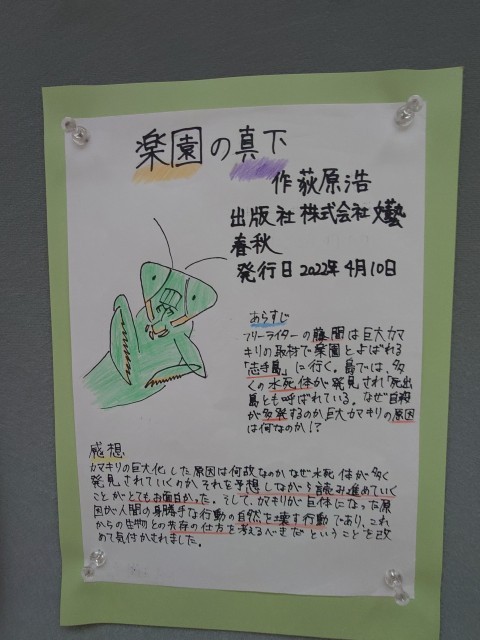 楽園の真下
作 荻原浩
出版社 株式会社文藝
春秋
発行日 2022年4月10日
あらすじ
フリーライターの藤間は巨大カマ
キリの取材で楽園とよばれる
「志手島」に行く。島では、多
くの水死体が発見され「死出
島とも呼ばれている。なぜ自殺
が多発するのか巨大カマキリの原因
は何なのか!?
感想
カマキリの巨大化した原因は何故なのかなぜ水死体が多く
発見されていくのかそれを予想しながら読み進めていく
ことがとてもお面白かった。そして、カマキリが巨体になった原
因が人間の身勝手な行動の自然を壊す行動であり、これ
からの生物との共存の仕方を考えるべきだということを改
めて気付かされました。